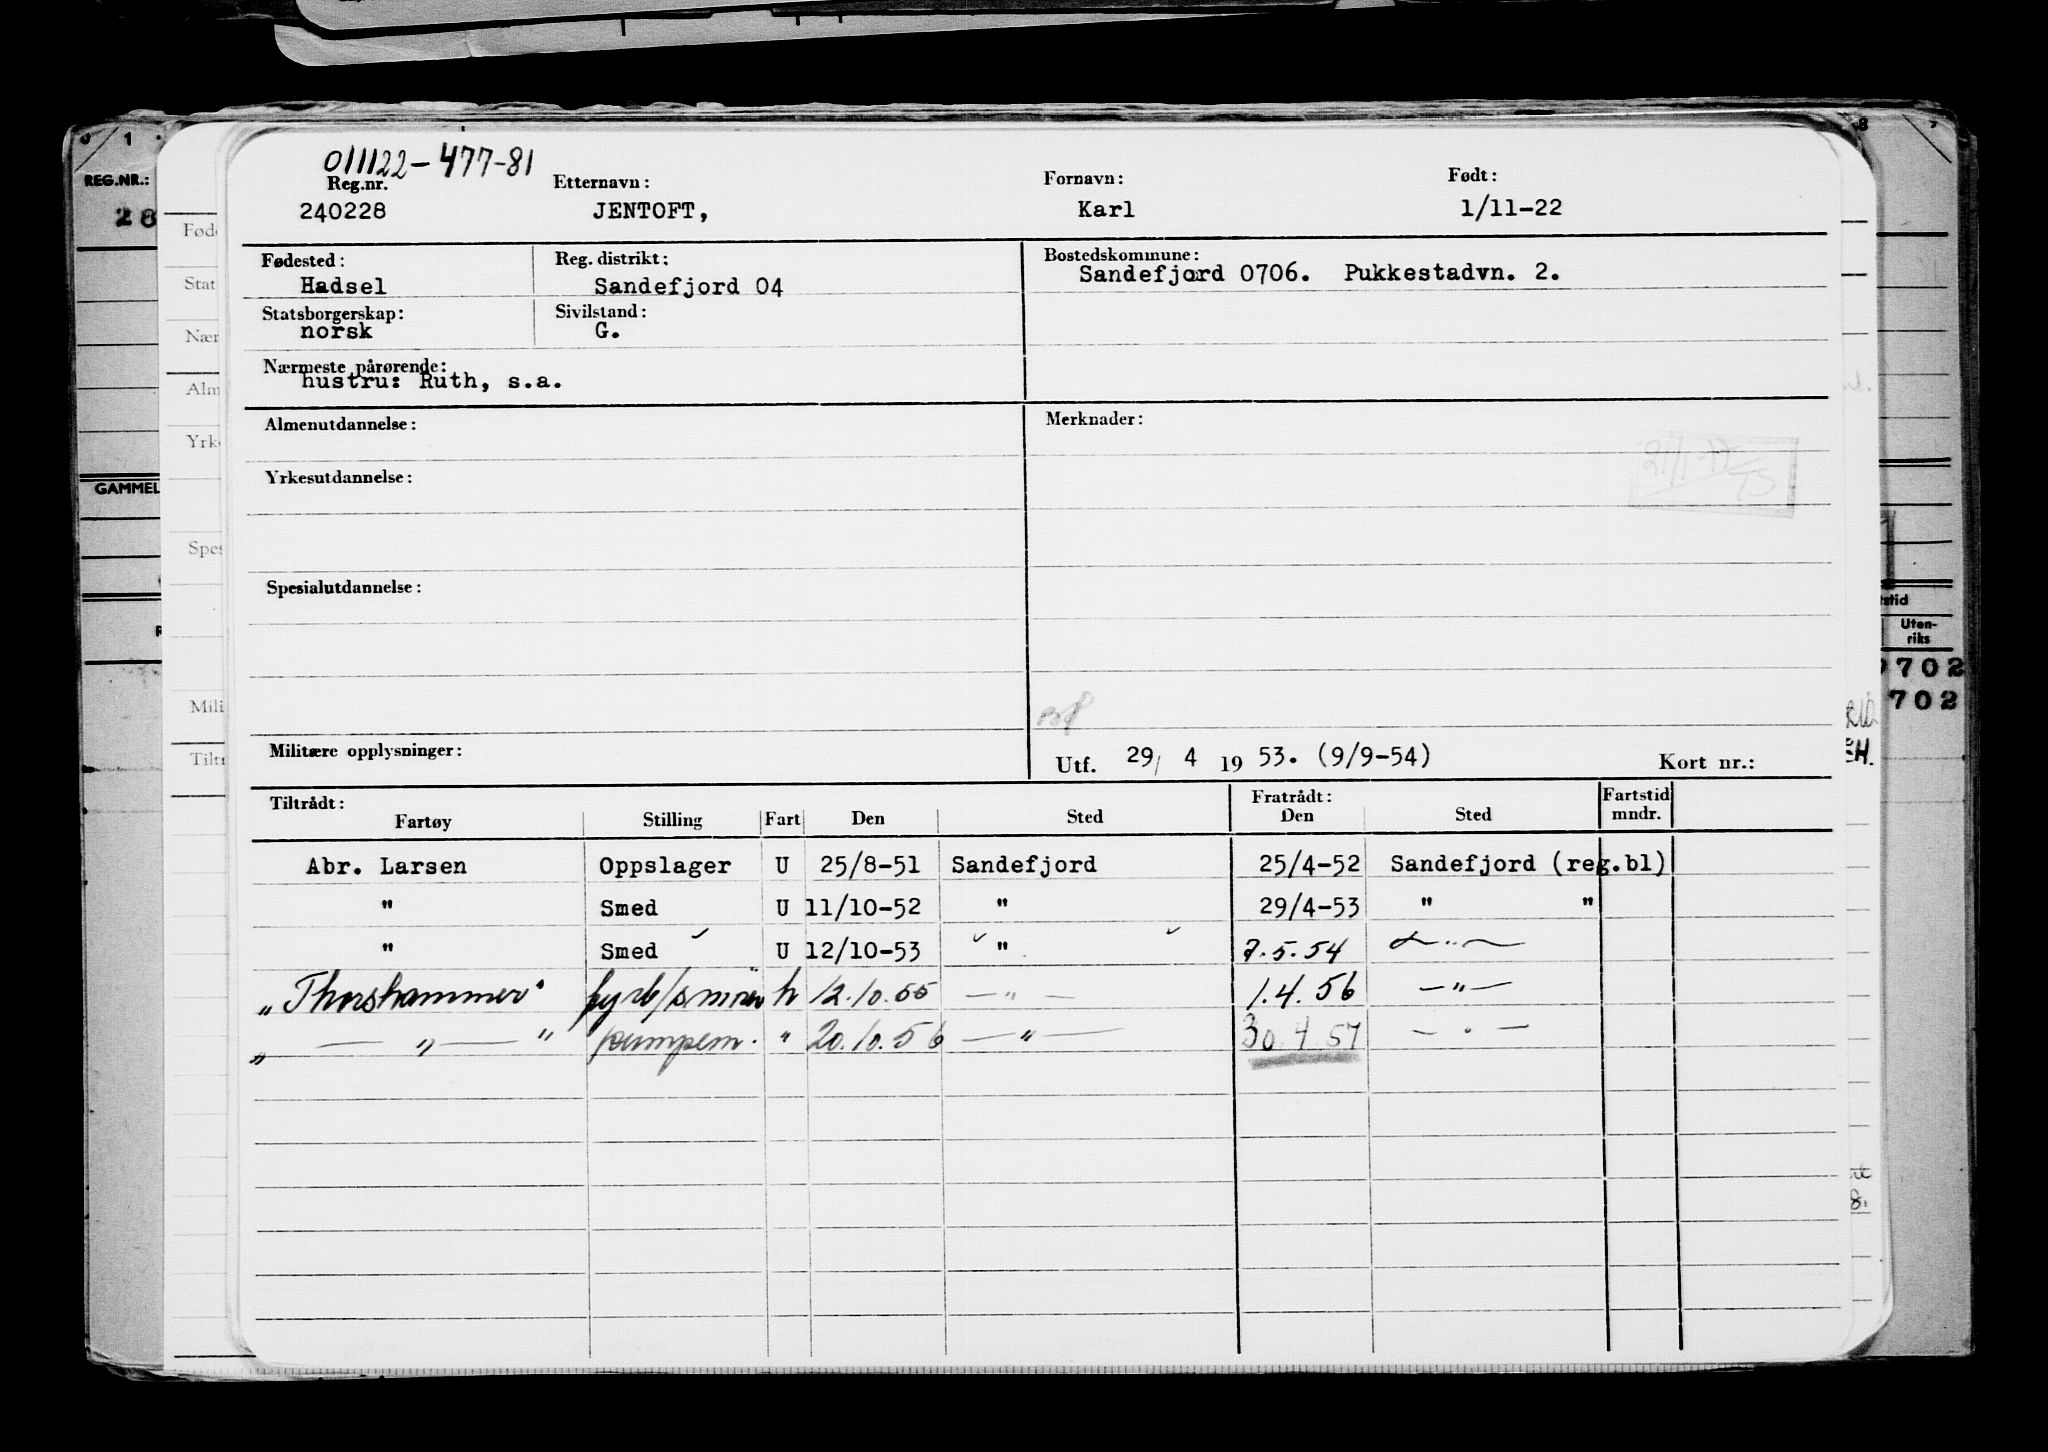 011122-477-81
Reg.nr. Etternavn: Fornavn: Født:
240228 JENTOFT, Karl 1/11-22
Fødested: Reg. distrikt: Bostedskommune:
Hadsel Sandefjord 04 Sandefjord 0706. Pukkestadvn. 2.
Statsborgerskap: Sivilstand:
norsk G.
Nærmeste pårørende:
hustru: Ruth, s.a.
Almenutdannelse: Merknader:
Yrkesutdannelse:
Spesialutdannelse:
Militære opplysninger: Utf. 29/ 4 19 53. (9/9-54) Kort nr.:
Tiltrådt: Fratrådt: Fartstid
Fartøy Stilling Fart Den Sted Den Sted mndr.
Abr. Larsen Oppslager U 25/8-51 Sandefjord 25/4-52 Sandefjord (reg.bl)
" Smed U 11/10-52 " 29/4-53 " "
" Smed U 12/10-53 " 7.5.54 — " —
"Thorshammer" fyrb/smører h 12.10.55 — " — 1.4.56 — " —
" — " — " pumpem. " 20.10.56 — " — 30.4.57 — " —
REG.NR.:
28
GAMMEL
Uten-
riks
702
702